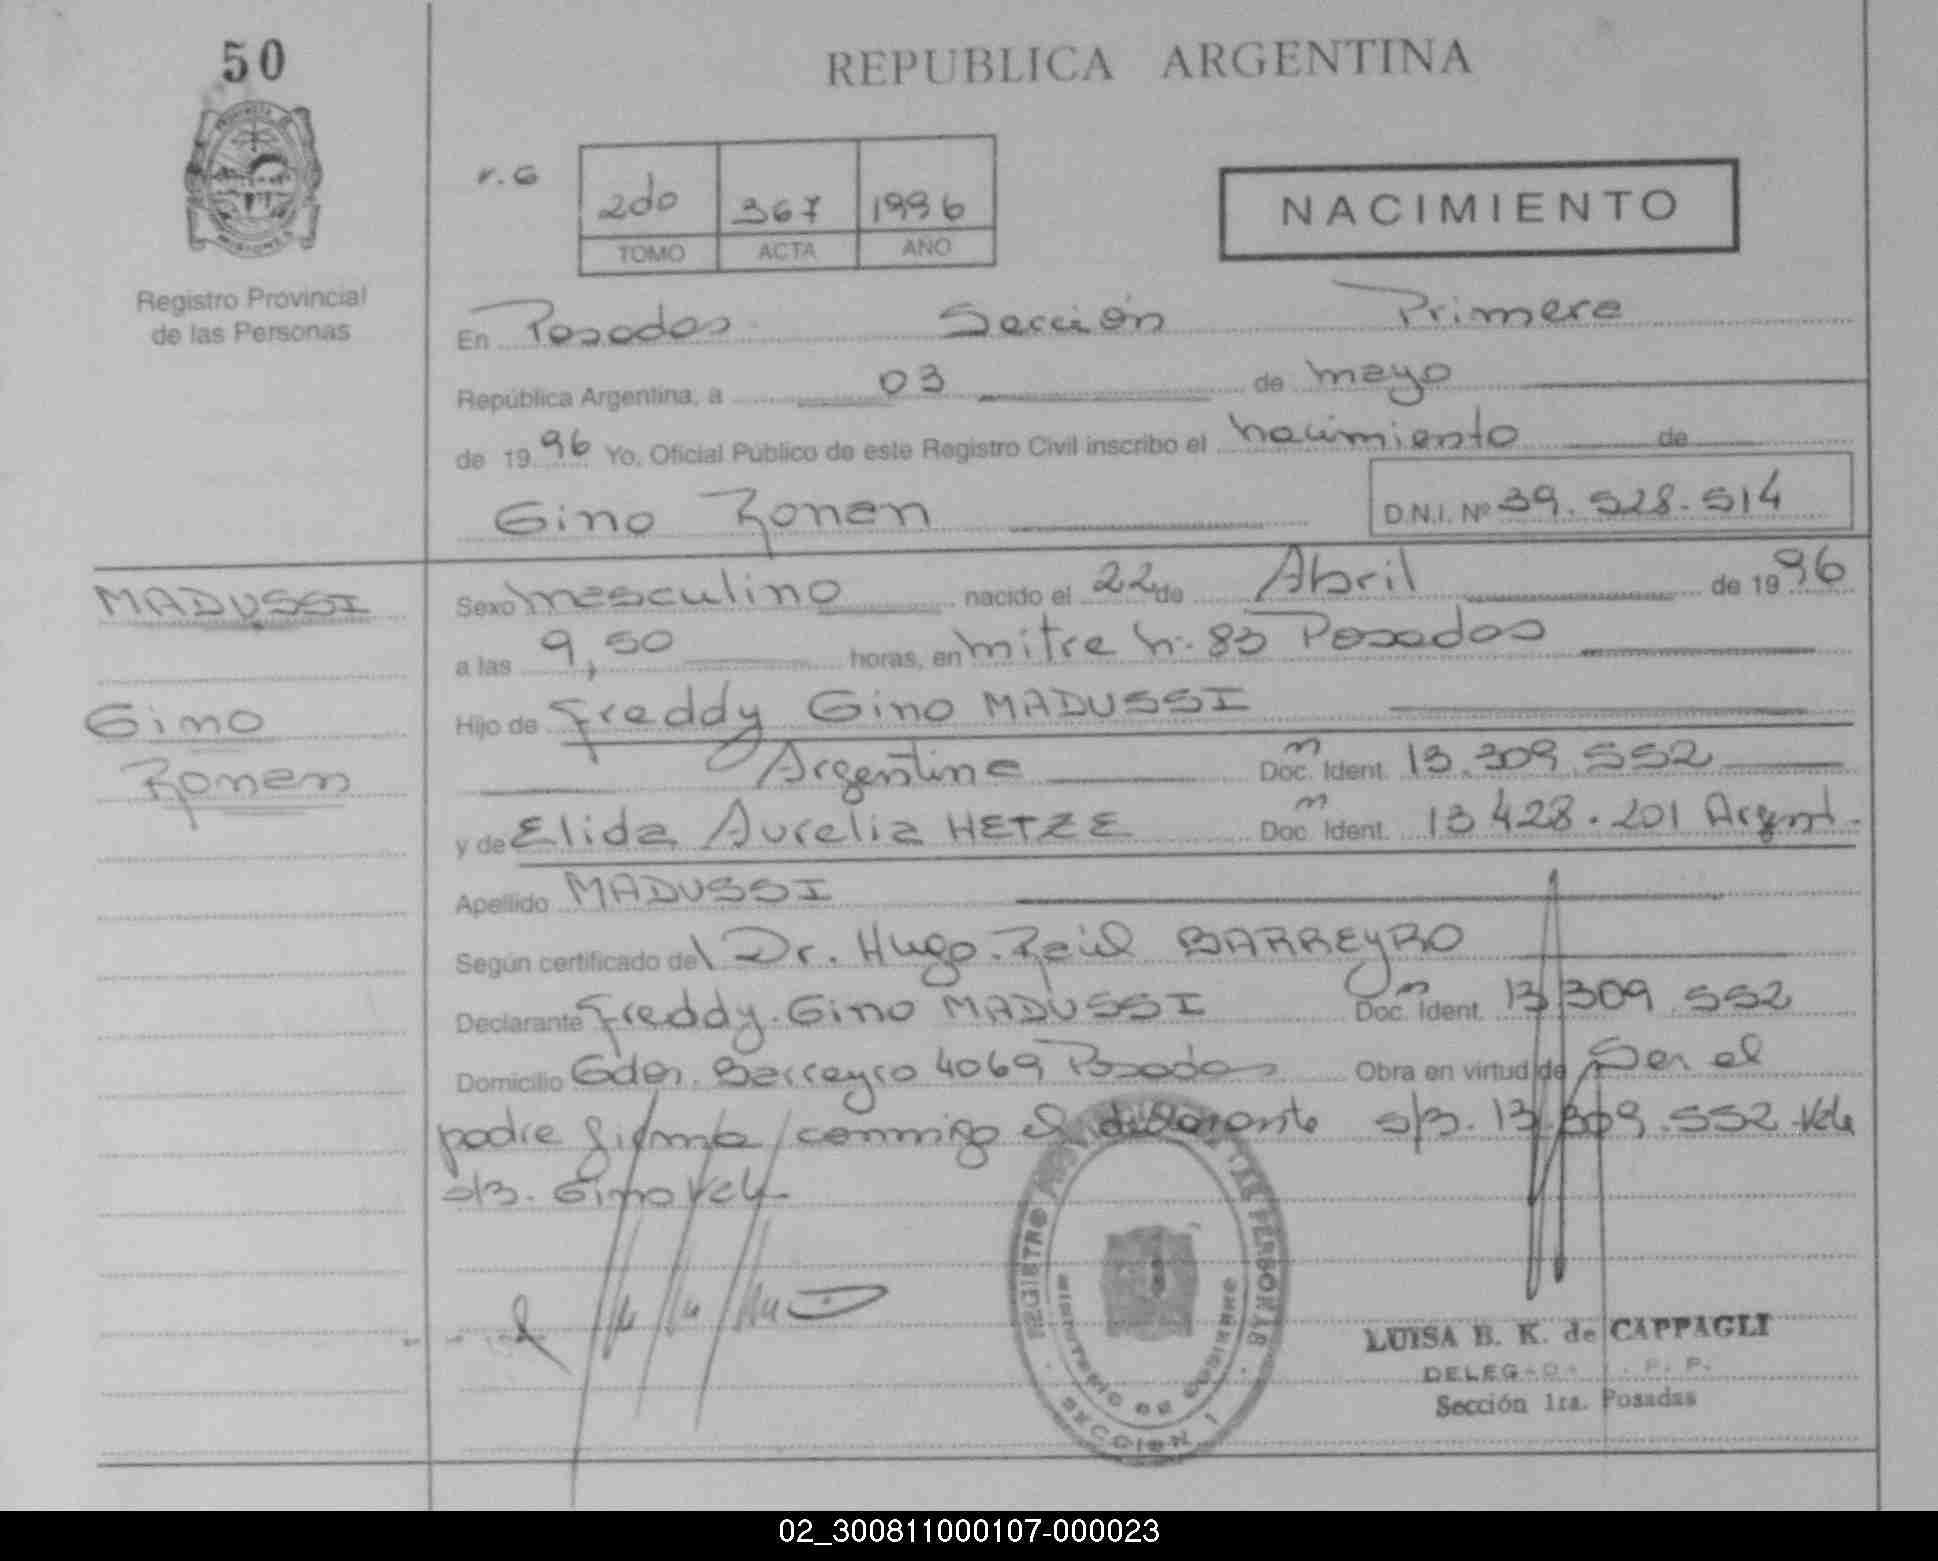 50
REPUBLICA ARGENTINA
PROVINCIA
MISIONES
r.G
2do 367 1996
TOMO ACTA AÑO
NACIMIENTO
Registro Provincial
de las Personas
En Posadas Sección Primera
República Argentina, a 03 de mayo
de 1996 Yo, Oficial Público de este Registro Civil inscribo el nacimiento de
Gino Ronen
D.N.I. Nº 39.528.514
MADUSSI
Gino
Ronen
Sexo masculino nacido el 22 de Abril de 1996
a las 9,50 horas, en mitre n. 83 Posadas
Hijo de Freddy Gino MADUSSI
Argentina Doc. Ident. m 13.309.552
y de Elida Aurelia HETZE Doc. Ident. m 13 428.201 Argent.
Apellido MADUSSI
Según certificado del Dr. Hugo Raúl BARREYRO
Declarante Freddy Gino MADUSSI Doc. Ident. m 13 309.552
Domicilio Gdor. Barreyro 4069 Posadas Obra en virtud de Ser el
padre firma conmigo el declarante s/B. 13.309.552 Vale
s/B. Gino Vale
REGISTRO DE LAS PERSONAS
MINISTERIO DE GOBIERNO
SECCION 1
LUISA B. K. de CAPPAGLI
Sección 1ra. Posadas
02_300811000107-000023